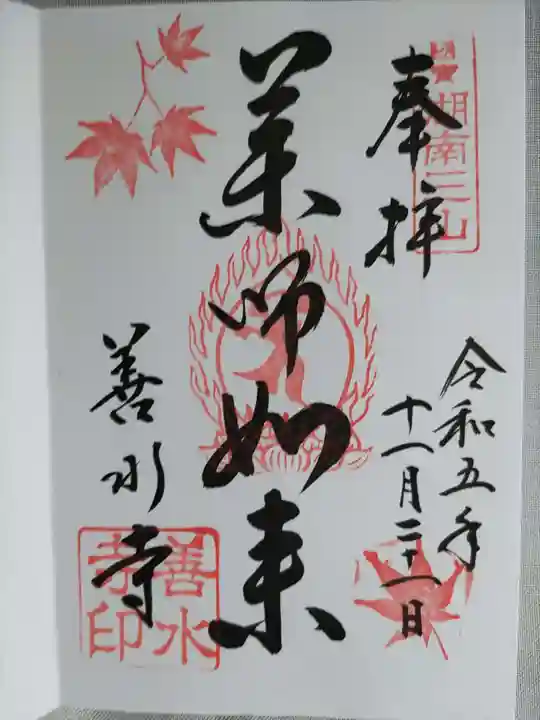 奉拝
国宝
湖南三山
令和五年
十一月二十一日
薬師如来
善水寺
善水寺印